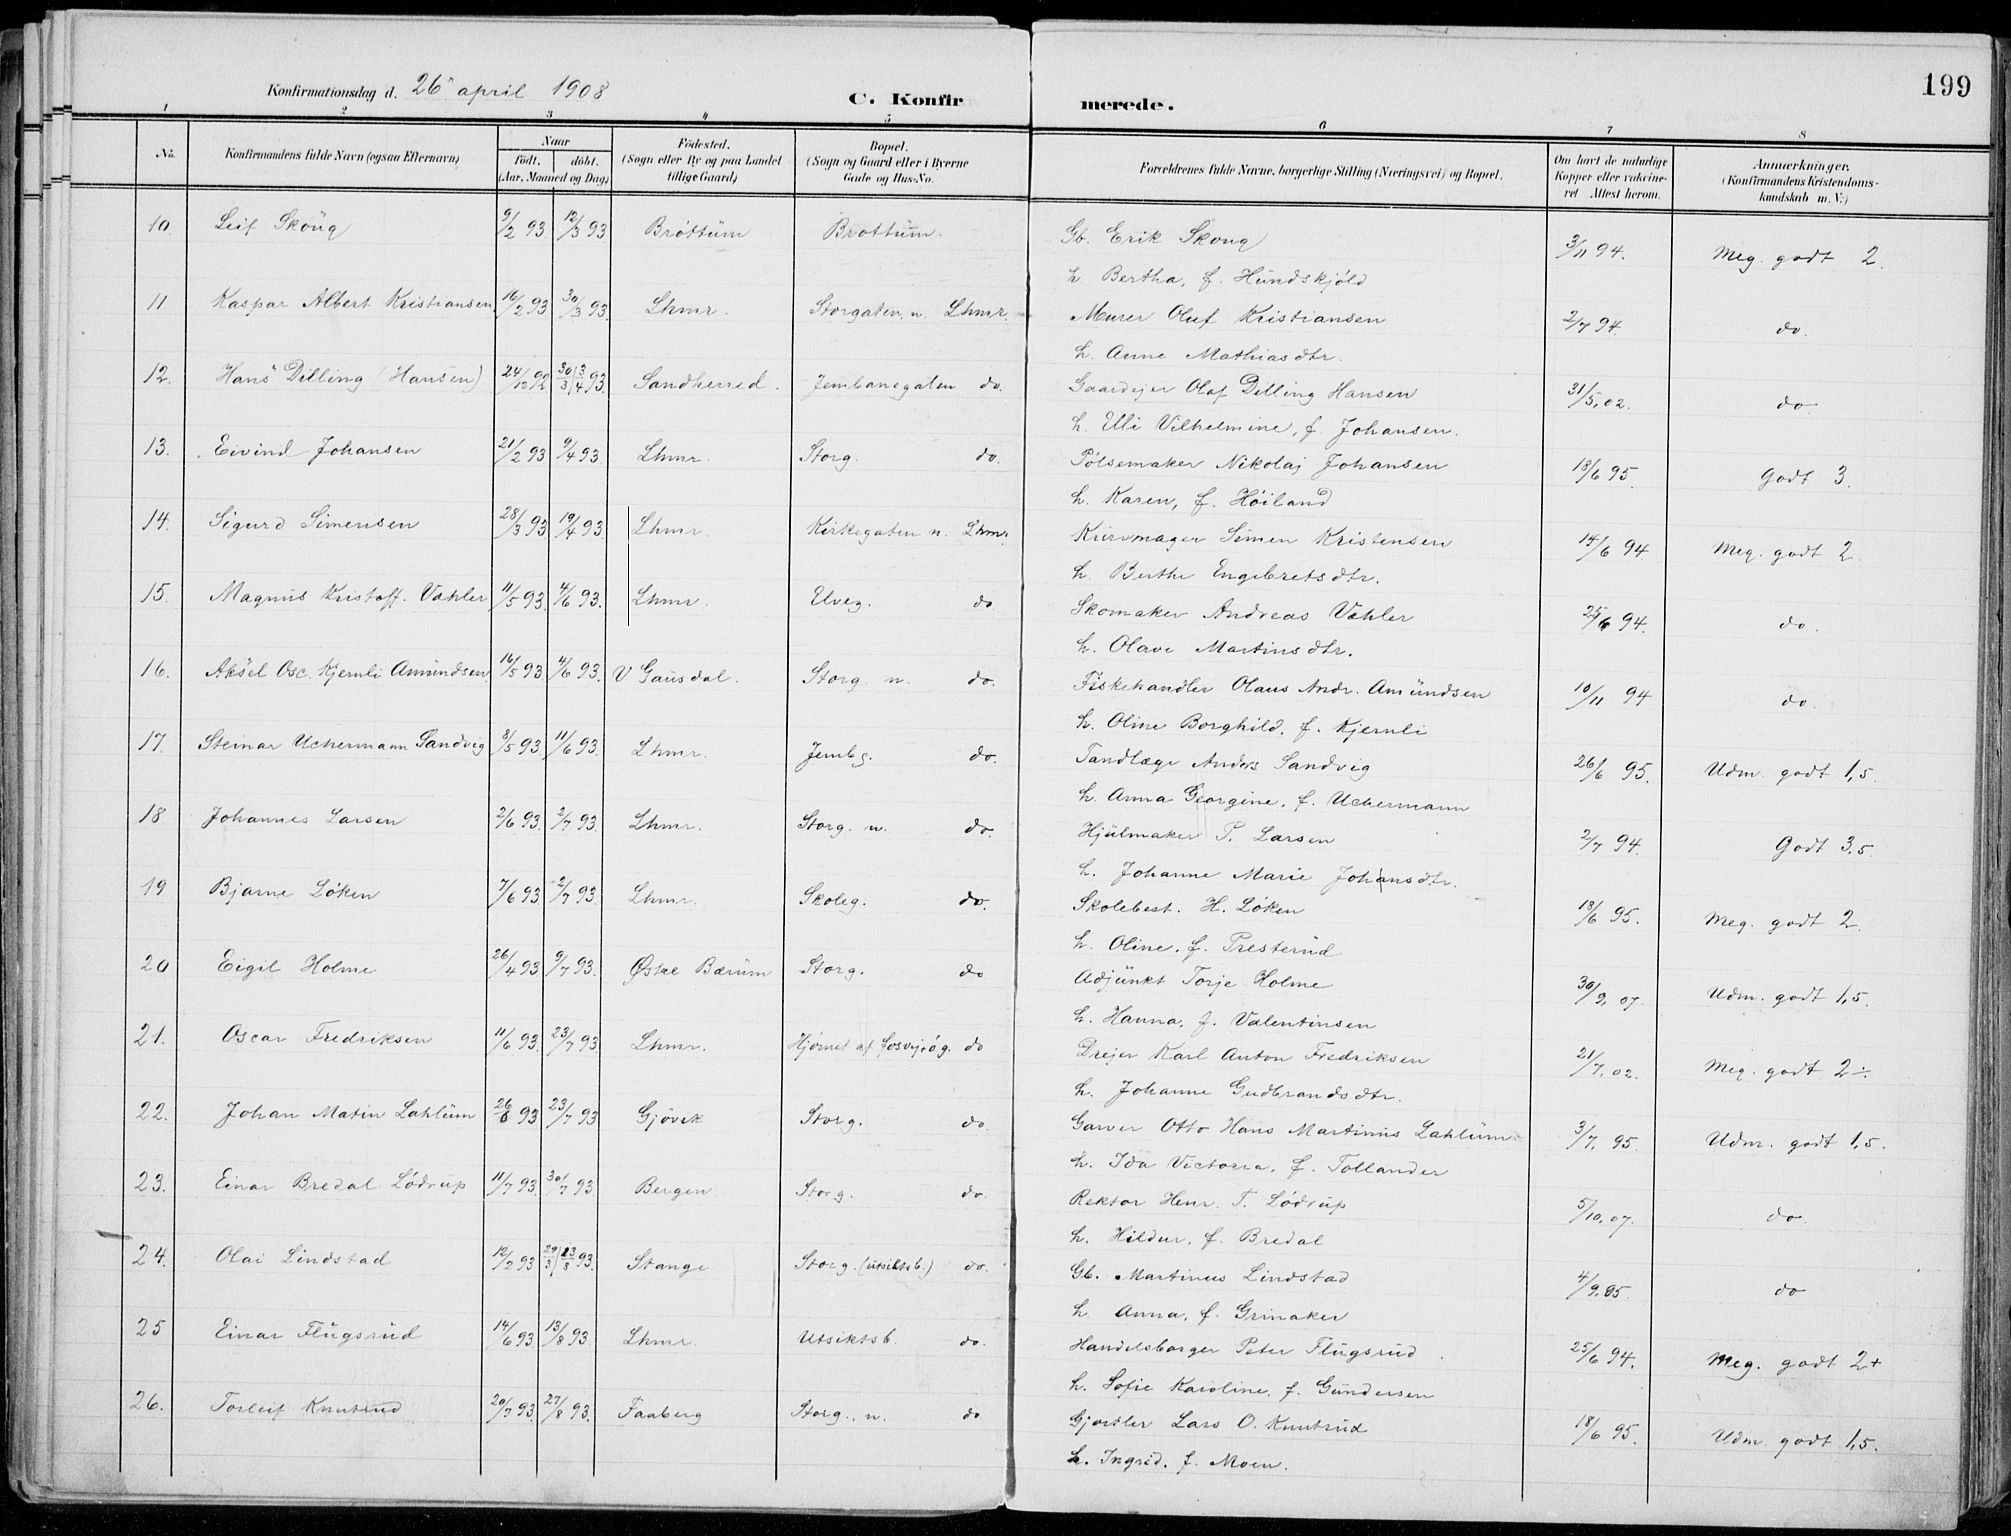 199
Konfirmationsdag d. 26 april 1908
C. Konfirmerede.
1 2 3 4 5 6 7 8
No. Konfirmandens fulde Navn (ogsaa Efternavn) Naar født. døbt. (Aar, Maaned og Dag) Fødested. (Sogn eller By og paa Landet tillige Gaard) Bopæl. (Sogn og Gaard eller i Byerne Gade og Hus-No. Forældrenes fulde Navne, borgerlige Stilling (Næringsvei) og Bopæl. Om havt de naturlige Kopper eller vakcineret Attest herom. Anmærkninger. (Konfirmandens Kristendomskundskab m. V.)
10. Leif Skoug 9/2 93 12/3 93 Brøttum Brøttum. Gb. Erik Skoug 3/11 94. Meg. godt 2.
h. Bertha, f. Hundskjöld
11 Kaspar Albert Kristiansen 16/2 93 30/3 93. Lhmr. Storgaten, n. Lhmr. Murer Oluf Kristiansen 2/7 94 do.
h. Anne Mathiasdtr.
12. Hans Dilling (Hansen) 24/12 92 30/3 | 3/4 93. Sandherred. Jernbanegaten do. Gaardejer Olaf Dilling Hansen 31/5, 02. do.
h. Uli Vilhelmine, f. Johansen.
13. Eivind Johansen 21/2 93 9/4 93. Lhmr. Storg. do. Pølsemaker Nikolaj Johansen 18/6 95. Godt 3.
h. Karen, f. Höiland
14. Sigurd Simensen 28/3 93 19/4 93. Lhmr. Kirkegaten n. Lhmr. Kurvmager Simen Kristensen 14/6 94 Meg. godt 2.
h. Berthe Engebretsdtr.
15. Magnus Kristoff. Væhler 11/5 93. 4/6 93. Lhmr. Elveg. do. Skomaker Andreas Væhler 25/6 94. do.
h. Olave Martinsdtr.
16. Aksel Osc. Kjernli Amundsen. 16/5 93. 4/6 93. V Gausdal. Storg. n. do. Fiskehandler Olaus Andr. Amundsen 10/11 94 do.
h. Oline Borghild, f. Kjernli
17. Steinar Uchermann Sandvig 8/5 93. 11/6 93. Lhmr. Jernbg. do. Tandlæge Anders Sandvig 26/6 95. Udm. godt 1,5.
h. Anna Georgine, f. Uchermann
18 Johannes Larsen 2/6 93. 2/7 93. Lhmr. Storg. n. do. Hjulmaker P. Larsen 2/7 94. Godt 3,5.
h. Johanne Marie Johansdtr.
19 Bjarne Løken 7/6 93 2/7 93. Lhmr. Skoleg. do. Skolebest. H. Løken 18/6 95. Meg. godt 2.
h. Oline, f. Presterud
20 Eigil Holme 26/4 93 9/7 93. Østre Bærum Storg. do Adjunkt Torje Holme 30/9, 07. Udm. godt 1,5.
h. Hanna, f. Valentinsen
21. Oscar Fredriksen 11/6 93. 23/7 93. Lhmr. Hjørnet af do Drejer Karl Anton Fredriksen 21/7, 02. Meg. godt 2÷.
h. Johanne Gudbrandsdtr.
22. Johan Matin Lahlum 26/6 93 23/7 93 Gjøvik Storg. do. Garver Otto Hans Martinus Lahlum 3/7, 95 Udm. godt 1,5.
h. Ida Victoria, f. Tollander
23. Einar Bredal Lödrup 11/7 93. 30/7 93 Bergen Storg. do. Rektor Henr. T. Lödrup 5/10, 07. do.
h. Hildur, f. Bredal
24. Olai Lindstad 12/2 93 29/3 | 13/8 93. Stange Storg. (utsiktsb.) do. Gb. Martinus Lindstad 4/9, 95. do
h. Anna, f. Grinaker
25 Einar Flugsrud 14/6 93 13/8 93. Lhmr. Utsiktsb. do. Handelsborger Peter Flugsrud. 25/6 94. Meg. godt 2+
h. Sofie Karoline, f. Gundersen
26. Torleif Knutrud 20/7 93. 27/8 93. Faaberg Storg., n. do Gjørtler Lars O. Knutrud 18/6 95. Udm. godt 1,5.
h. Ingrid, f. Moen.